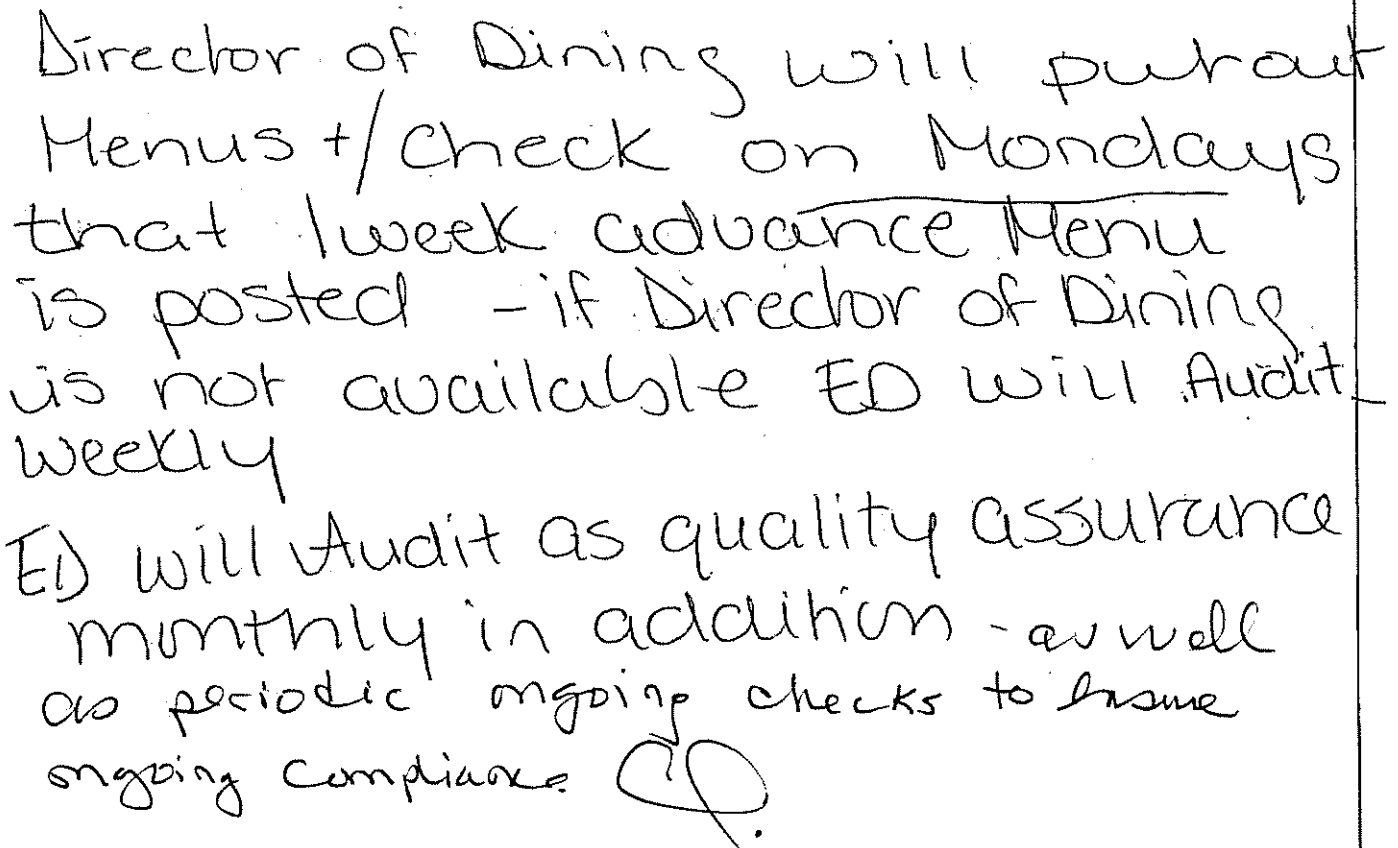 Director of Dining will put out
Menus +/ Check on Mondays
that 1 week advance Menu
is posted - if Director of Dining
is not available ED will Audit
weekly
ED will Audit as quality assurance
monthly in addition - as well
as periodic ongoing checks to Ensure
ongoing compliance.